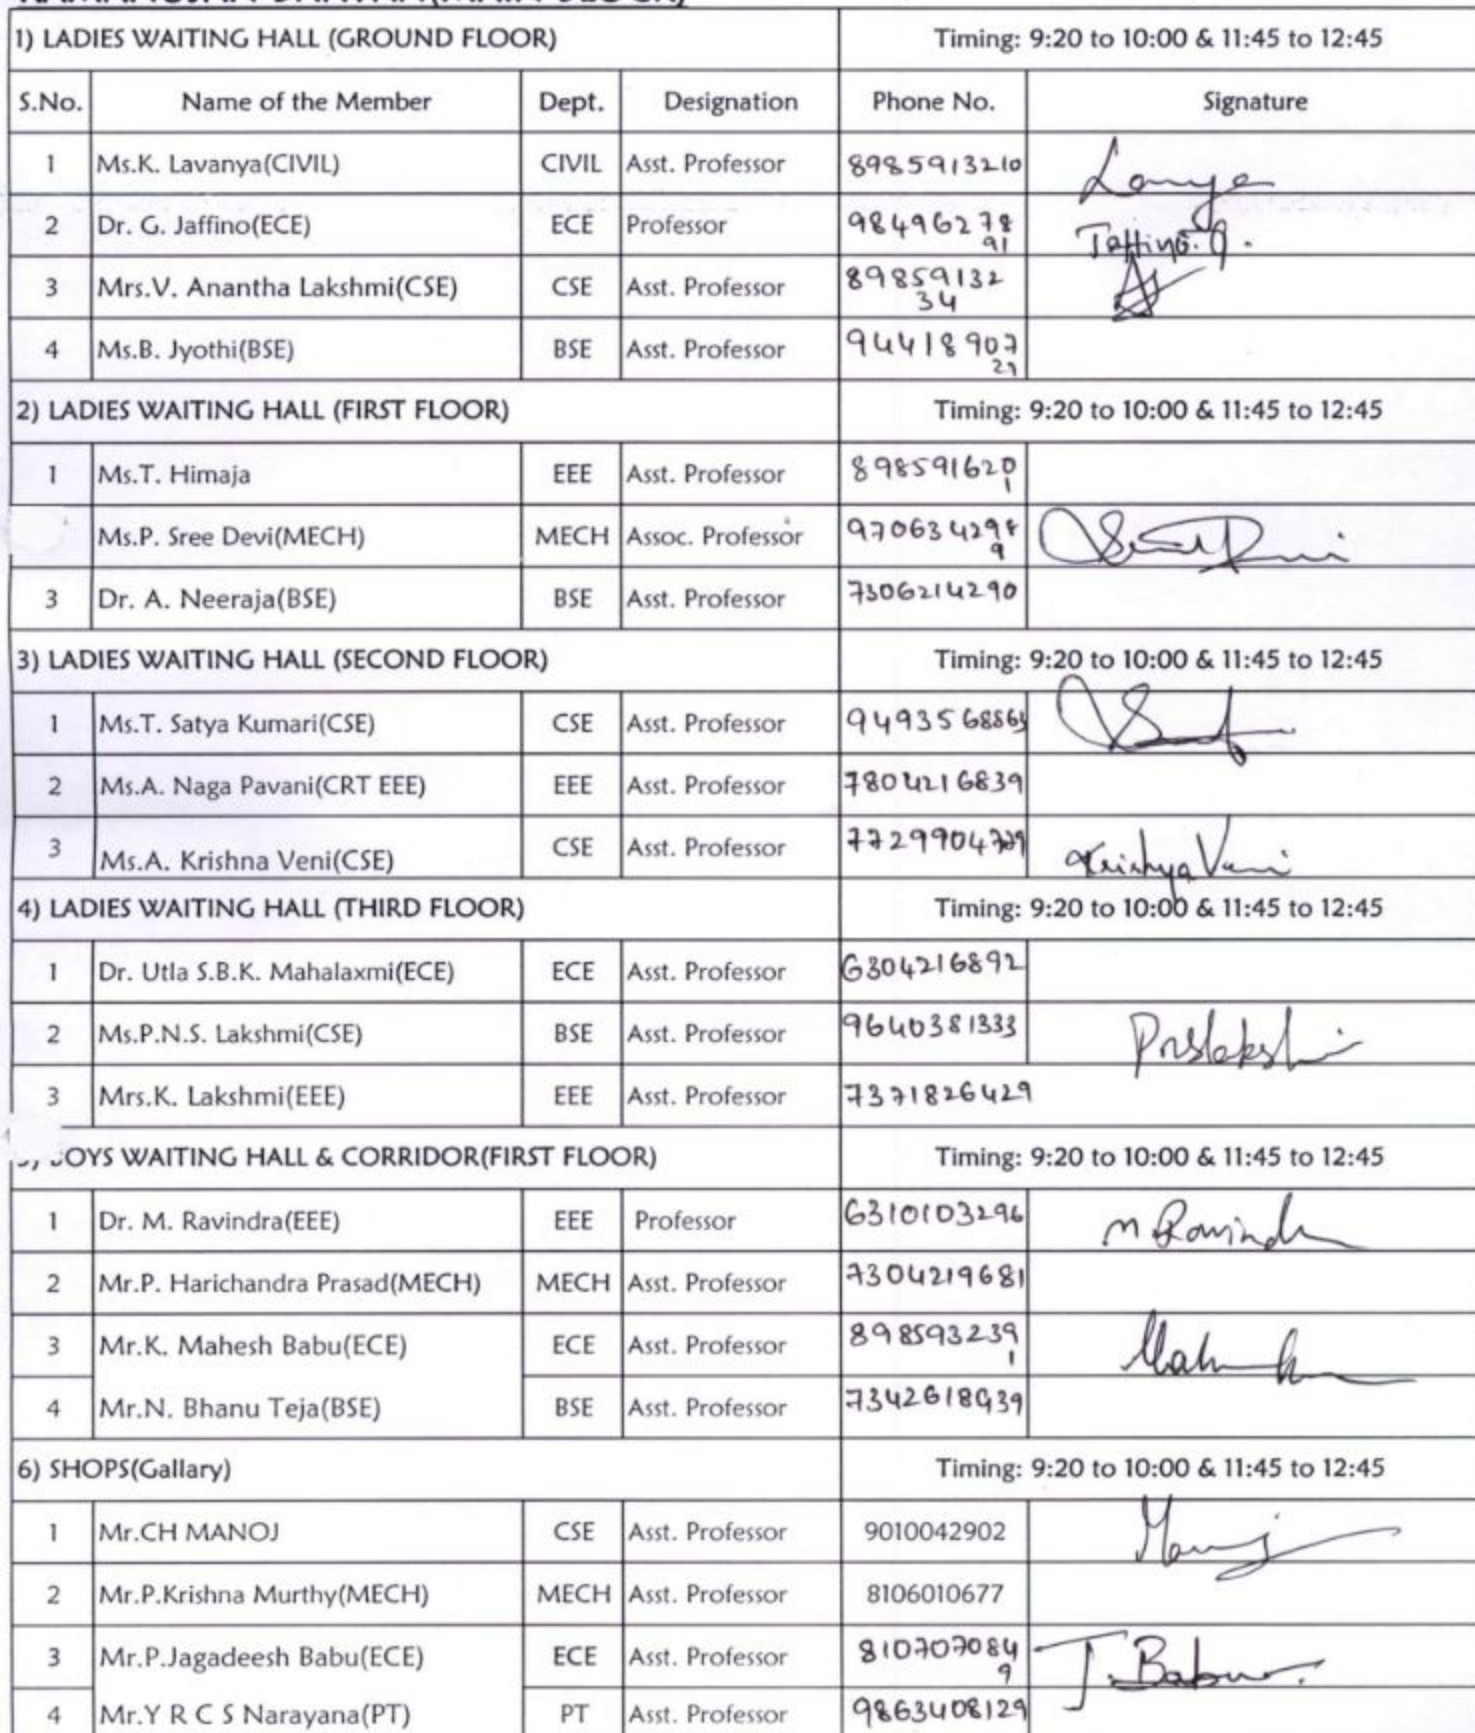 1) LADIES WAITING HALL (GROUND FLOOR) Timing: 9:20 to 10:00 & 11:45 to 12:45
S.No. Name of the Member Dept. Designation Phone No. Signature
1 Ms.K. Lavanya(CIVIL) CIVIL Asst. Professor 8985913210
2 Dr. G. Jaffino(ECE) ECE Professor 9849627891 Jaffino.G.
3 Mrs.V. Anantha Lakshmi(CSE) CSE Asst. Professor 8985913234
4 Ms.B. Jyothi(BSE) BSE Asst. Professor 9441890729
2) LADIES WAITING HALL (FIRST FLOOR) Timing: 9:20 to 10:00 & 11:45 to 12:45
1 Ms.T. Himaja EEE Asst. Professor 8985916201
Ms.P. Sree Devi(MECH) MECH Assoc. Professor
3 Dr. A. Neeraja(BSE) BSE Asst. Professor 7306214290
3) LADIES WAITING HALL (SECOND FLOOR) Timing: 9:20 to 10:00 & 11:45 to 12:45
1 Ms.T. Satya Kumari(CSE) CSE Asst. Professor 9493568863
2 Ms.A. Naga Pavani(CRT EEE) EEE Asst. Professor 7804216839
3 Ms.A. Krishna Veni(CSE) CSE Asst. Professor Krishna Veni
4) LADIES WAITING HALL (THIRD FLOOR) Timing: 9:20 to 10:00 & 11:45 to 12:45
1 Dr. Utla S.B.K. Mahalaxmi(ECE) ECE Asst. Professor 6304216892
2 Ms.P.N.S. Lakshmi(CSE) BSE Asst. Professor 9640381333 Pnslakshmi
3 Mrs.K. Lakshmi(EEE) EEE Asst. Professor 7371826429
BOYS WAITING HALL & CORRIDOR(FIRST FLOOR) Timing: 9:20 to 10:00 & 11:45 to 12:45
1 Dr. M. Ravindra(EEE) EEE Professor 6310103296 M Ravindra
2 Mr.P. Harichandra Prasad(MECH) MECH Asst. Professor 7304219681
3 Mr.K. Mahesh Babu(ECE) ECE Asst. Professor 8985932391
4 Mr.N. Bhanu Teja(BSE) BSE Asst. Professor 7342618939
6) SHOPS(Gallary) Timing: 9:20 to 10:00 & 11:45 to 12:45
1 Mr.CH MANOJ CSE Asst. Professor 9010042902 Manoj
2 Mr.P.Krishna Murthy(MECH) MECH Asst. Professor 8106010677
3 Mr.P.Jagadeesh Babu(ECE) ECE Asst. Professor 8107070849 J. Babu
4 Mr.Y R C S Narayana(PT) PT Asst. Professor 9863408129